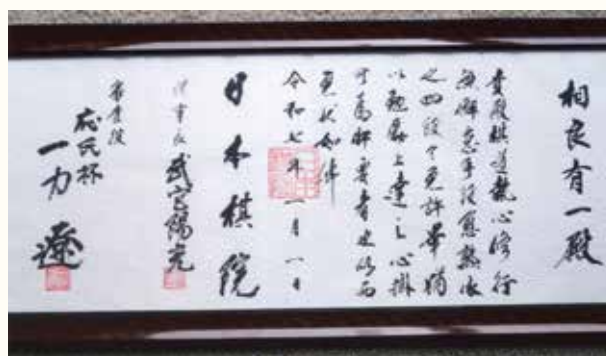 相良有一殿
貴殿棋道執心修行
無懈怠手段愈熟依
之四段令免許畢猶
以勉励上達之心掛
可為肝要者也仍而
免状如件
令和七年一月一日
日本棋院
理事長 武宮陽光
審査役
応氏杯
一力遼